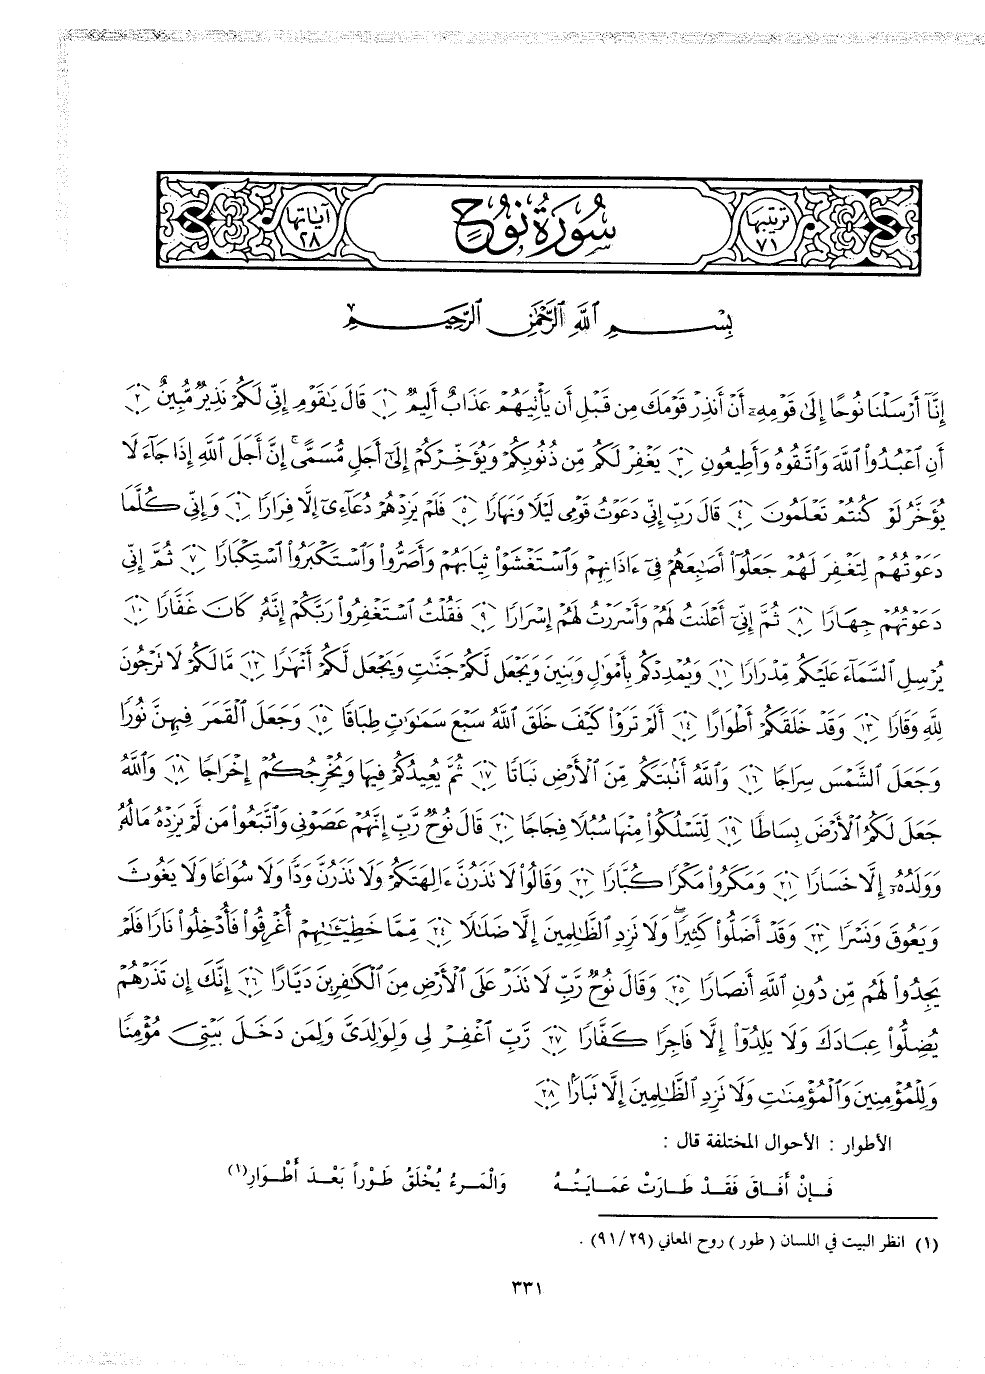 ترتيبها ٧١ سُورَةُ نُوحٍ آياتها ٢٨
بِسْمِ ٱللَّهِ ٱلرَّحْمَٰنِ ٱلرَّحِيمِ
إِنَّآ أَرْسَلْنَا نُوحًا إِلَىٰ قَوْمِهِۦٓ أَنْ أَنذِرْ قَوْمَكَ مِن قَبْلِ أَن يَأْتِيَهُمْ عَذَابٌ أَلِيمٌ ١ قَالَ يَٰقَوْمِ إِنِّى لَكُمْ نَذِيرٌ مُّبِينٌ ٢
أَنِ ٱعْبُدُوا۟ ٱللَّهَ وَٱتَّقُوهُ وَأَطِيعُونِ ٣ يَغْفِرْ لَكُم مِّن ذُنُوبِكُمْ وَيُؤَخِّرْكُمْ إِلَىٰٓ أَجَلٍ مُّسَمًّى ۚ إِنَّ أَجَلَ ٱللَّهِ إِذَا جَآءَ لَا
يُؤَخَّرُ لَوْ كُنتُمْ تَعْلَمُونَ ٤ قَالَ رَبِّ إِنِّى دَعَوْتُ قَوْمِى لَيْلًا وَنَهَارًا ٥ فَلَمْ يَزِدْهُمْ دُعَآءِىٓ إِلَّا فِرَارًا ٦ وَإِنِّى كُلَّمَا
دَعَوْتُهُمْ لِتَغْفِرَ لَهُمْ جَعَلُوٓا۟ أَصَٰبِعَهُمْ فِىٓ ءَاذَانِهِمْ وَٱسْتَغْشَوْا۟ ثِيَابَهُمْ وَأَصَرُّوا۟ وَٱسْتَكْبَرُوا۟ ٱسْتِكْبَارًا ٧ ثُمَّ إِنِّى
دَعَوْتُهُمْ جِهَارًا ٨ ثُمَّ إِنِّىٓ أَعْلَنتُ لَهُمْ وَأَسْرَرْتُ لَهُمْ إِسْرَارًا ٩ فَقُلْتُ ٱسْتَغْفِرُوا۟ رَبَّكُمْ إِنَّهُۥ كَانَ غَفَّارًا ١٠
يُرْسِلِ ٱلسَّمَآءَ عَلَيْكُم مِّدْرَارًا ١١ وَيُمْدِدْكُم بِأَمْوَٰلٍ وَبَنِينَ وَيَجْعَل لَّكُمْ جَنَّٰتٍ وَيَجْعَل لَّكُمْ أَنْهَٰرًا ١٢ مَّا لَكُمْ لَا تَرْجُونَ
لِلَّهِ وَقَارًا ١٣ وَقَدْ خَلَقَكُمْ أَطْوَارًا ١٤ أَلَمْ تَرَوْا۟ كَيْفَ خَلَقَ ٱللَّهُ سَبْعَ سَمَٰوَٰتٍ طِبَاقًا ١٥ وَجَعَلَ ٱلْقَمَرَ فِيهِنَّ نُورًا
وَجَعَلَ ٱلشَّمْسَ سِرَاجًا ١٦ وَٱللَّهُ أَنۢبَتَكُم مِّنَ ٱلْأَرْضِ نَبَاتًا ١٧ ثُمَّ يُعِيدُكُمْ فِيهَا وَيُخْرِجُكُمْ إِخْرَاجًا ١٨ وَٱللَّهُ
جَعَلَ لَكُمُ ٱلْأَرْضَ بِسَاطًا ١٩ لِّتَسْلُكُوا۟ مِنْهَا سُبُلًا فِجَاجًا ٢٠ قَالَ نُوحٌ رَّبِّ إِنَّهُمْ عَصَوْنِى وَٱتَّبَعُوا۟ مَن لَّمْ يَزِدْهُ مَالُهُۥ
وَوَلَدُهُۥٓ إِلَّا خَسَارًا ٢١ وَمَكَرُوا۟ مَكْرًا كُبَّارًا ٢٢ وَقَالُوا۟ لَا تَذَرُنَّ ءَالِهَتَكُمْ وَلَا تَذَرُنَّ وَدًّا وَلَا سُوَاعًا وَلَا يَغُوثَ
وَيَعُوقَ وَنَسْرًا ٢٣ وَقَدْ أَضَلُّوا۟ كَثِيرًا ۖ وَلَا تَزِدِ ٱلظَّٰلِمِينَ إِلَّا ضَلَٰلًا ٢٤ مِّمَّا خَطِيٓـَٰٔتِهِمْ أُغْرِقُوا۟ فَأُدْخِلُوا۟ نَارًا فَلَمْ
يَجِدُوا۟ لَهُم مِّن دُونِ ٱللَّهِ أَنصَارًا ٢٥ وَقَالَ نُوحٌ رَّبِّ لَا تَذَرْ عَلَى ٱلْأَرْضِ مِنَ ٱلْكَٰفِرِينَ دَيَّارًا ٢٦ إِنَّكَ إِن تَذَرْهُمْ
يُضِلُّوا۟ عِبَادَكَ وَلَا يَلِدُوٓا۟ إِلَّا فَاجِرًا كَفَّارًا ٢٧ رَّبِّ ٱغْفِرْ لِى وَلِوَٰلِدَىَّ وَلِمَن دَخَلَ بَيْتِىَ مُؤْمِنًا
وَلِلْمُؤْمِنِينَ وَٱلْمُؤْمِنَٰتِ وَلَا تَزِدِ ٱلظَّٰلِمِينَ إِلَّا تَبَارًۢا ٢٨
الأطوار : الأحوال المختلفة قال :
فَإِنْ أَفَاقَ فَقَدْ طَارَتْ عَمَايَتُهُ وَالْمَرءُ يُخْلَقُ طَوْراً بَعْدَ أَطْوَارِ(١)
(١) انظر البيت في اللسان ( طور ) روح المعاني (٢٩/ ٩١) .
٣٣١